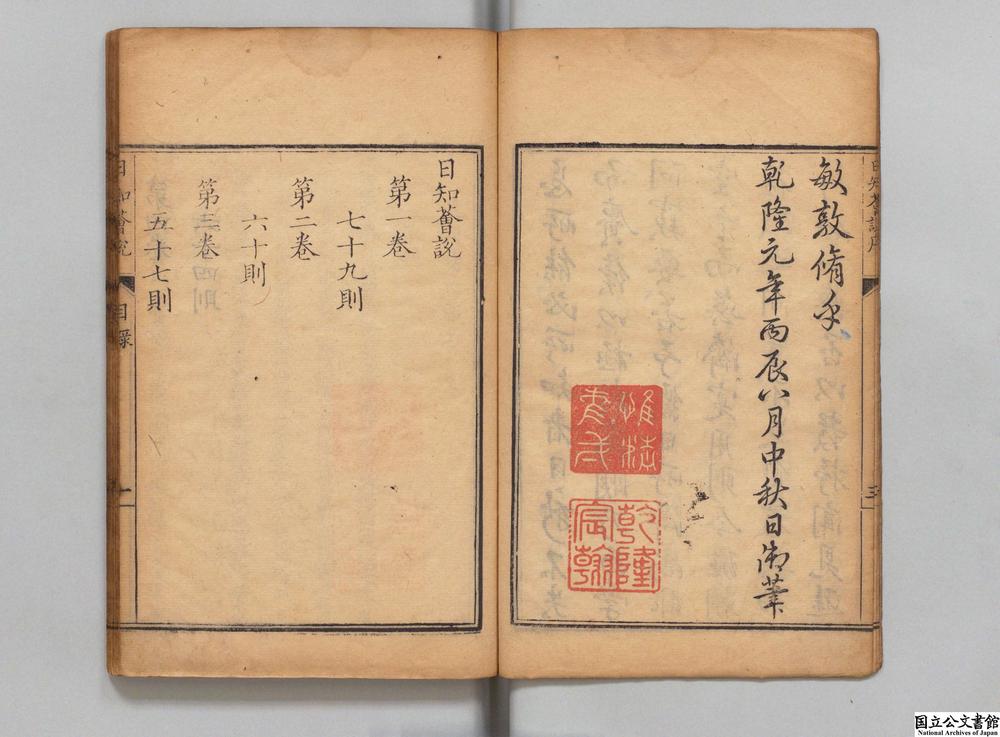 敏敦脩乎
乾隆元年丙辰八月中秋日御筆
惟精惟一
乾隆宸翰
日知薈說
第一卷
七十九則
第二卷
六十則
第三卷
五十七則
日知薈說
目錄
一
国立公文書館
National Archives of Japan